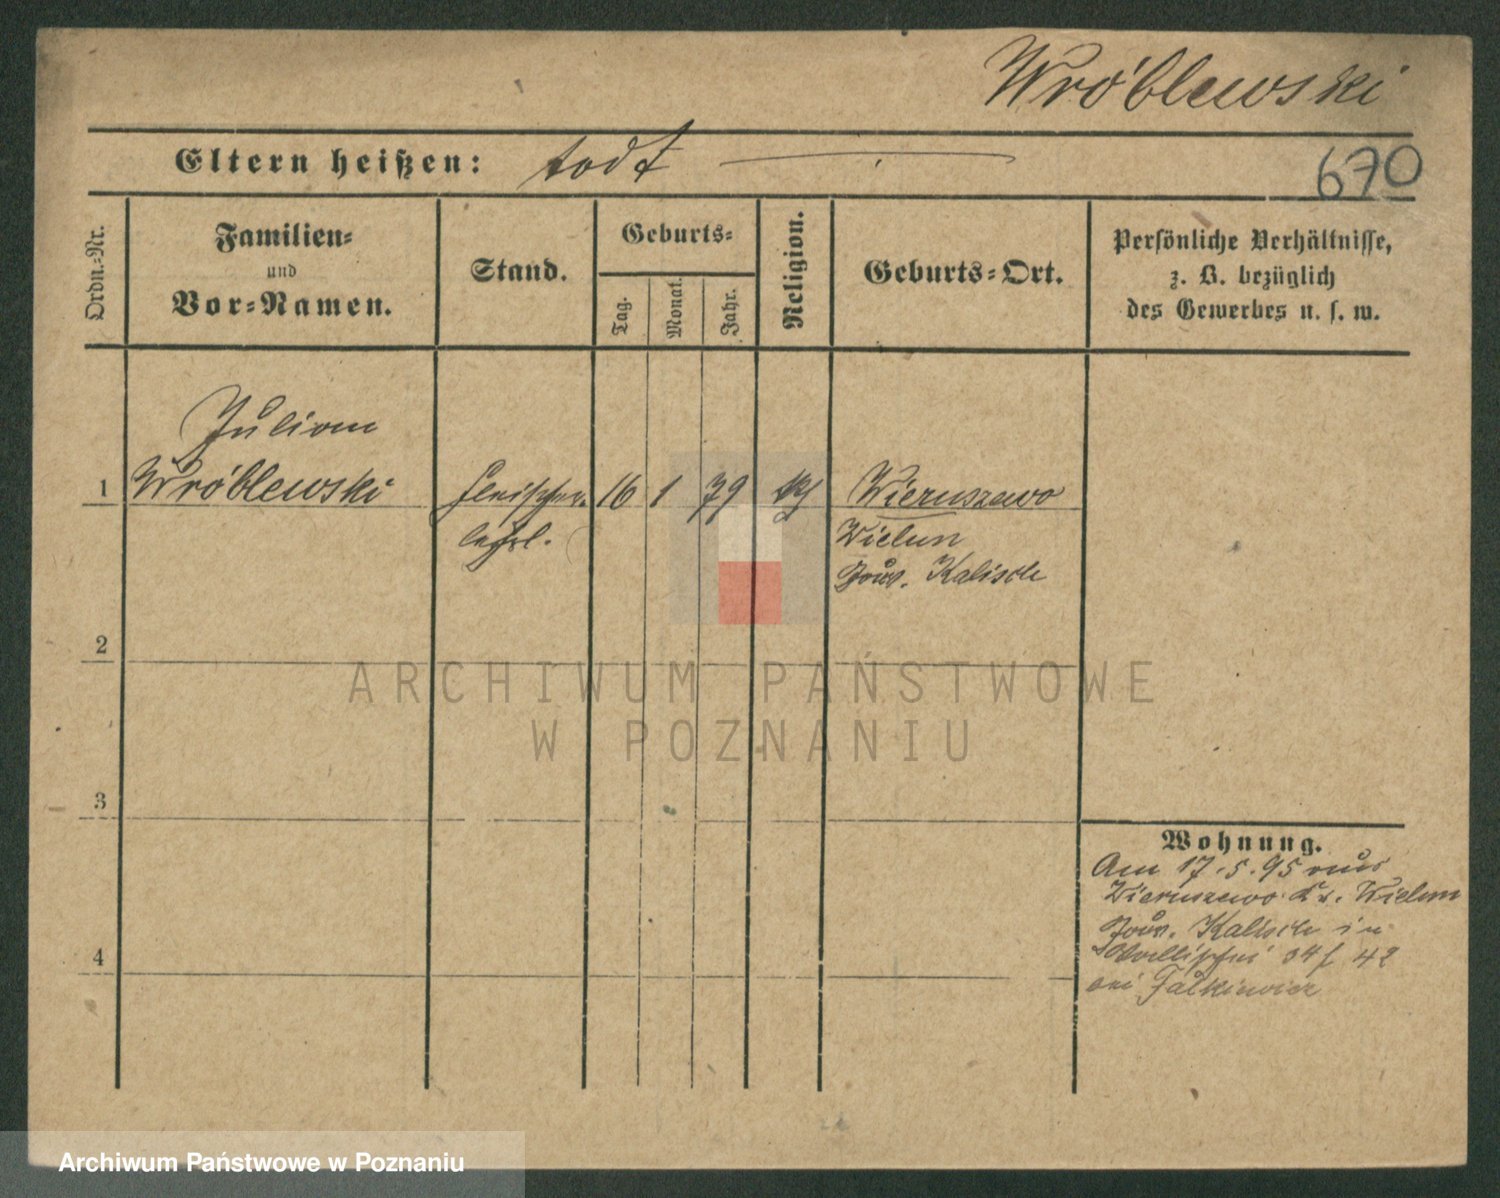 Wróblewski
Eltern heißen: todt
670
Ordn.-Nr.
Familien-
und
Vor-Namen.
Stand.
Geburts-
Tag.
Monat.
Jahr.
Religion.
Geburts-Ort.
Persönliche Verhältnisse,
z. B. bezüglich
des Gewerbes u. s. w.
Julian
1 Wróblewski Fleischer- 16 1 79 Wieruszewo
lehrl.
Wielun
Gouv. Kalisch
2
3
4
Wohnung.
Am 17.5.95 aus
Wieruszewo Kr. Wielun
Gouv. Kalisch in
42
bei Falkiewicz
ARCHIWUM PAŃSTWOWE
W POZNANIU
Archiwum Państwowe w Poznaniu